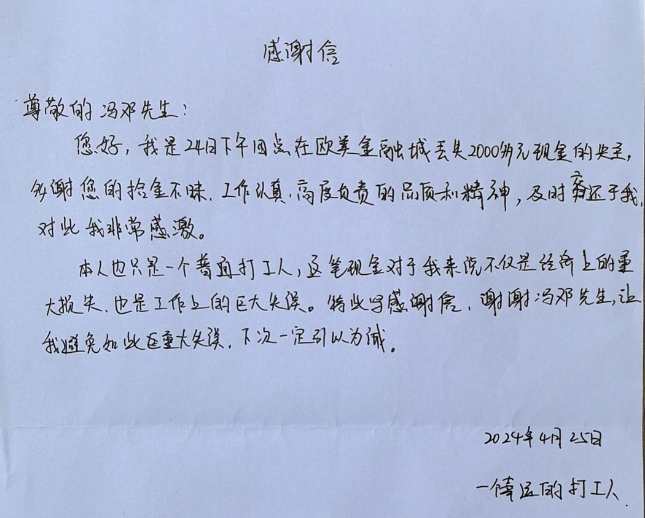 感谢信
尊敬的冯邓先生:
您好,我是24日下午四点在欧美金融城丢失2000多元现金的失主,
多谢您的拾金不昧、工作认真、高度负责的品质和精神,及时归还于我,
对此我非常感激。
本人也只是一个普通打工人,这笔现金对于我来说不仅是经济上的重
大损失、也是工作上的巨大失误。特此写感谢信,谢谢冯邓先生,让
我避免如此重大失误,下次一定引以为戒。
2024年4月25日
一幸运的打工人